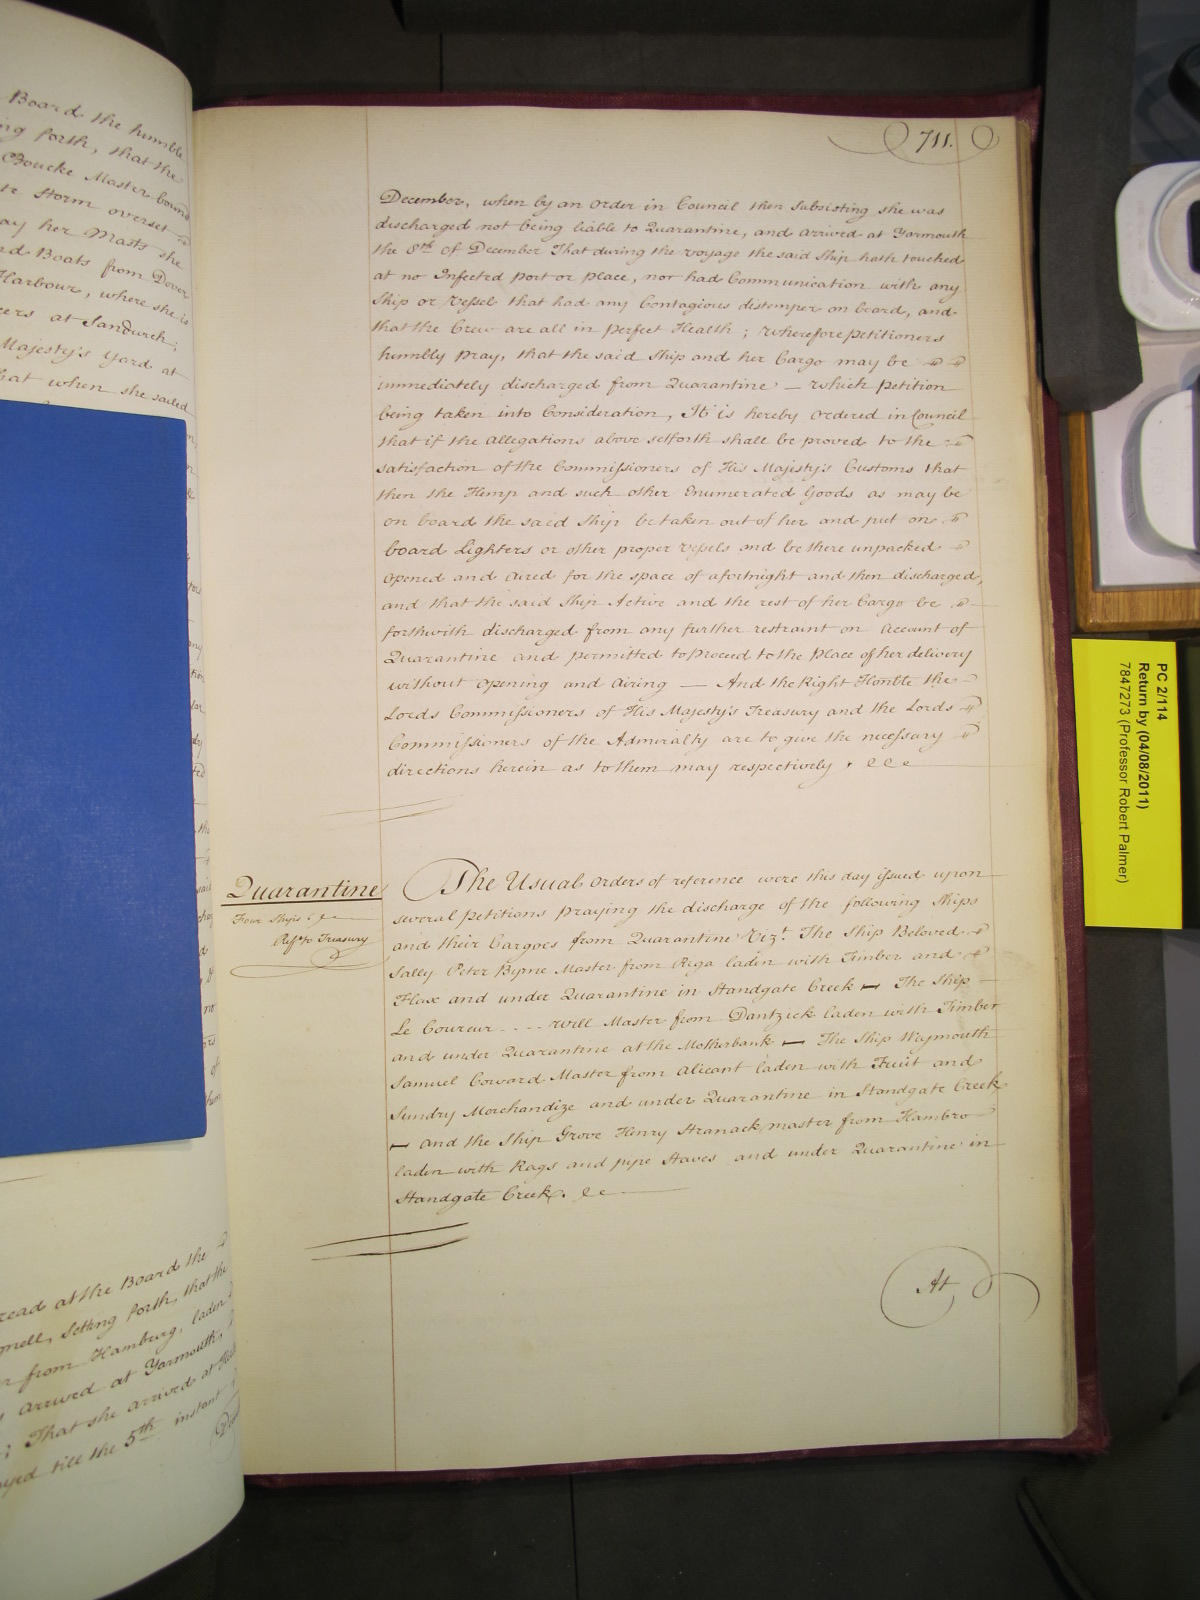 Board the humble
ing forth, that the
Boucke Master bound
te Storm overset
ay her Masts she
nd Boats from Dover
Harbour, where she is
cers at Sandwich;
Majesty's Yard at
hat when she sailed
read at the Board the
gnell, Setting forth, that the
r from Hamburg, laden
arrived at Yarmouth,
: That she arrived at
ayed till the 5th instant
711.
December, when by an Order in Council then Subsisting she was
discharged not being liable to Quarantine, and arrived at Yarmouth
the 8th of December That during the Voyage the said Ship hath touched
at no Infected Port or place, nor had Communication with any
Ship or Vessel that had any Contagious distemper on board, and
that the Crew are all in perfect Health; Wherefore petitioners
humbly pray, that the said Ship and her Cargo may be
immediately discharged from Quarantine — which petition
being taken into Consideration, It is hereby Ordered in Council
that if the Allegations above setforth shall be proved to the
satisfaction of the Commissioners of His Majesty's Customs that
then the Hemp and such other Enumerated Goods as may be
on board the said Ship be taken out of her and put on
board Lighters or other proper Vessels and be there unpacked
opened and aired for the space of a fortnight and then discharged,
and that the said Ship Active and the rest of her Cargo be
forthwith discharged from any further restraint on Account of
Quarantine and permitted to proceed to the Place of her delivery
without opening and Airing — And the Right Honble the
Lords Commissioners of His Majesty's Treasury and the Lords
Commissioners of the Admiralty are to give the necessary
directions herein as to them may respectively.
Quarantine
Four Ships
Ref to Treasury
The Usual Orders of reference were this day issued upon
several petitions praying the discharge of the following Ships
and their Cargoes from Quarantine Vizt. The Ship Beloved
Sally Peter Byrne Master from Riga laden with Timber and
Flax and under Quarantine in Standgate Creek — The Ship
Le Coureur - - - - Will Master from Dantzick laden with Timber
and under Quarantine at the Motherbank — The Ship Weymouth
Samuel Coward Master from Alicant laden with Fruit and
Sundry Merchandize and under Quarantine in Standgate Creek
— and the Ship Grove Henry Stranack master from Hambro
laden with Rags and pipe Staves and under Quarantine in
Standgate Creek.
At
PC 2/114
Return by (04/08/2011)
7847273 (Professor Robert Palmer)